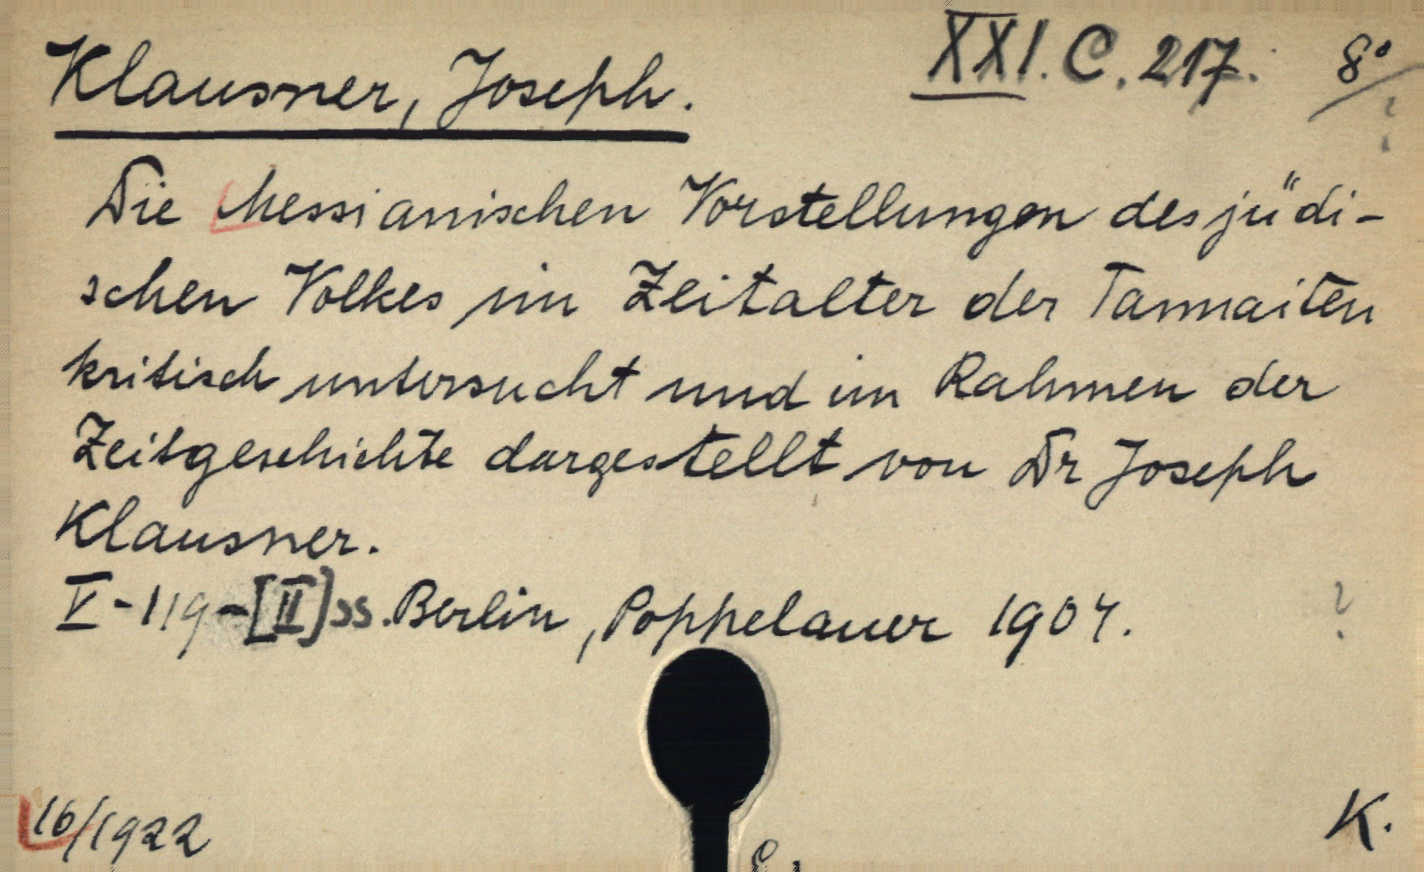 Klausner, Joseph.
XXI. C. 217. 8°
Die Messianischen Vorstellungen des jüdi-
schen Volkes im Zeitalter der Tannaiten
kritisch untersucht und im Rahmen der
Zeitgeschichte dargestellt von Dr Joseph
Klausner.
V-119-[II] ss. Berlin, Poppelauer 1904.
16/1922
K.